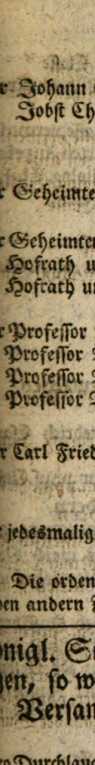 r Johann
Jobst Ch
r Geheimte
r Geheimten
Hofrath u
Hofrath un
r Professor
Professor
Professor
Professor
r Carl Fried
jedesmalig
Die orden
en andern
nigl. S
en, so w
Versan
Durchlauc